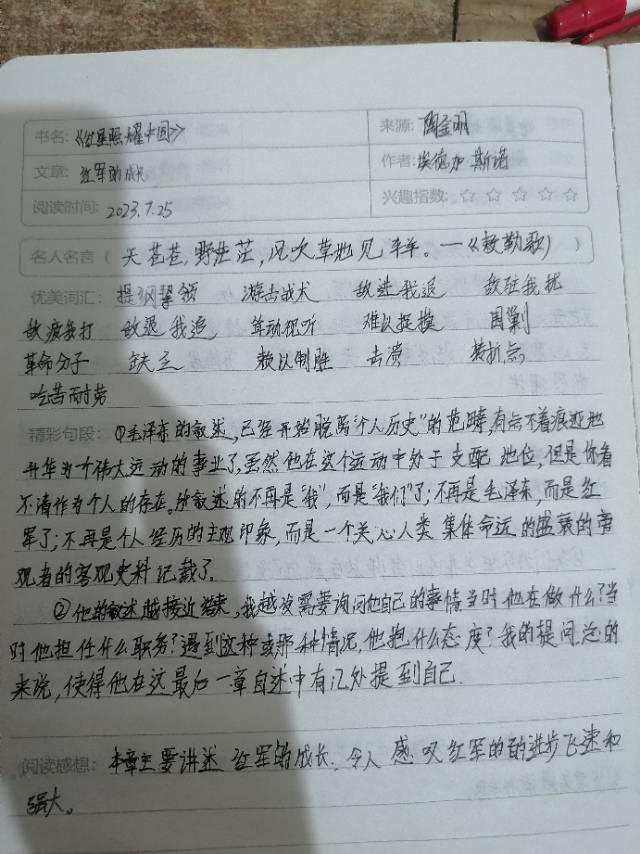 书名:《红星照耀中国》 来源:
文章: 红军的成长 作者:埃德加 斯诺
阅读时间: 2023.7.25 兴趣指数:☆ ☆ ☆ ☆ ☆
名人名言( 天苍苍,野茫茫,风吹草地见牛羊。—《敕勒歌》 )
优美词汇: 提纲挈领 游击战术 敌进我退 敌驻我扰
敌疲我打 敌退我追 耸动视听 难以捉摸 围剿
革命分子 缺乏 赖以制胜 击溃 转折点
吃苦而耐劳
精彩句段: ①毛泽东的叙述,已经开始脱离"个人历史"的范畴,有点不着痕迹地
升华为一个伟大运动的事业了,虽然他在这个运动中处于支配地位,但是你看
不清作为个人的存在,所叙述的不再是"我",而是"我们"了;不再是毛泽东,而是红
军了;不再是个人经历的主观印象,而是一个关心人类集体命运的盛衰的旁
观者的客观史料记载了。
②他的叙述越接近结束,我越发需要询问他自己的事情当时他在做什么?当
时他担任什么职务?遇到这种或那种情况,他抱什么态度?我的提问总的
来说,使得他在这最后一章自述中有几处提到自己.
阅读感想: 本章主要讲述 红军的成长,令人 感叹红军的的进步飞速和
强大。